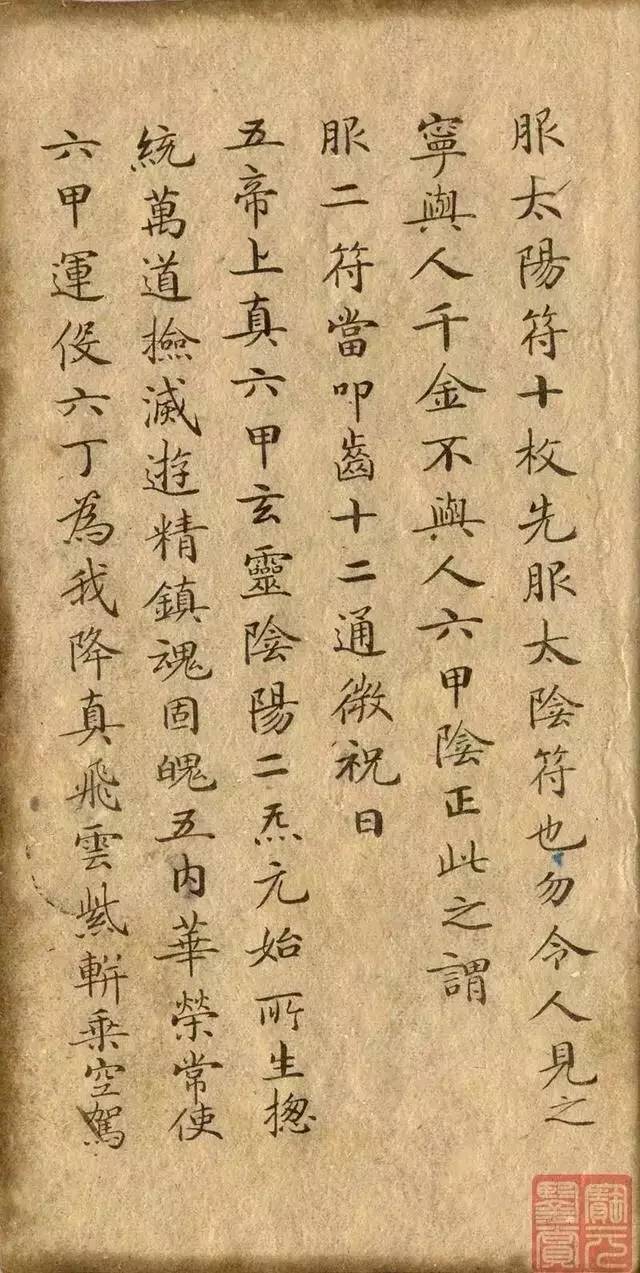 服太陽符十枚先服太陰符也勿令人見之
寧與人千金不與人六甲陰正此之謂
服二符當叩齒十二通微祝曰
五帝上真六甲玄靈陰陽二炁元始所生揔
統萬道撿滅遊精鎮魂固魄五内華榮常使
六甲運伇六丁為我降真飛雲紫軿乘空駕